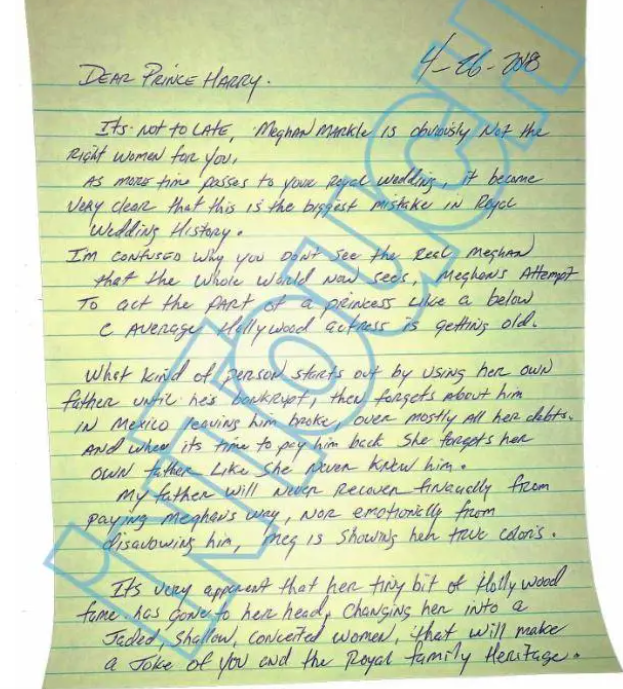 4-26-2018
DEAR PRINCE HARRY.
Its not to LATE, Meghan Markle is obviously Not the
Right women for you.
As more time passes to your Royal wedding, it became
very clear that this is the biggest mistake in Royal
Wedding History.
I'm confused why you don't see the real Meghan
that the whole world now sees, Meghans Attempt
To act the part of a princess Like a below
C Average Hollywood actress is getting old.
What kind of person starts out by using her own
father until he's bankrupt, then forgets about him
in Mexico leaving him broke, over mostly all her debts.
And when its time to pay him back she forgets her
own father Like she never knew him.
My father will never recover finacially from
paying Meghan's way, Nor emotionally from
disavowing him, Meg is showing her true colors.
It's very apparent that her tiny bit of Hollywood
fame has gone to her head, changing her into a
Jaded, shallow, conceited women, that will make
a Joke of you and the Royal family Heritage.
InTouch